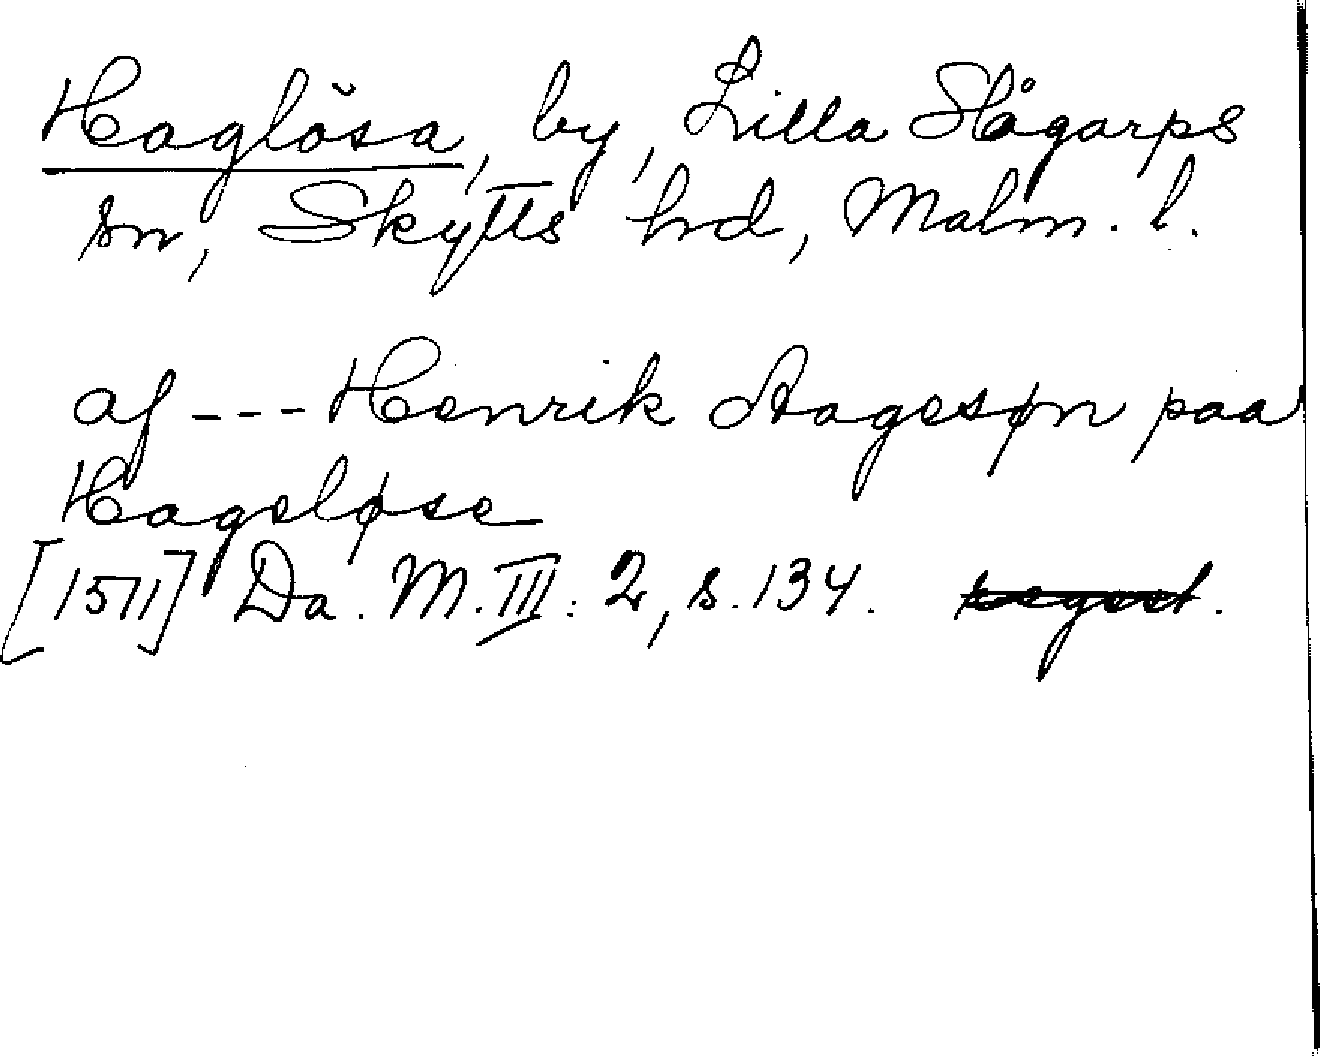 Haglösa, by, Lilla Slågarps
sn, Skytts hd, Malm. l.
af --- Henrik Aagesøn paa
Hageløse
[1571] Da. M. III: 2, s. 134.